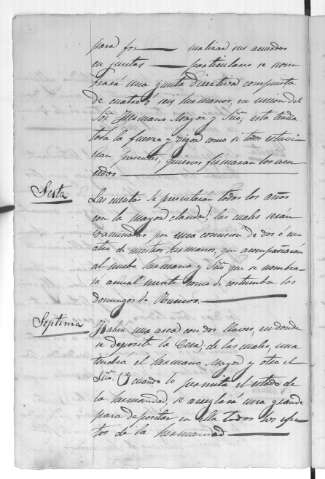 para for — malizar sus acuerdos
en juntas — particulares se nom
brará una junta directiva compuesta
de cuatro de sus hermanos, en union del
Sõr hermano mayor y Srio, esta tendrá
toda la fuerza y vigor como si todos estuvie
sen presentes, quienes firmaran los acu
erdos.
Sesta Las cuentas se presentarán todos los años
con la mayor claridad, las cuales sean
examinadas por una comision de dos ó cu
atro de nuestros hermanos, que acompañarán
al nuevo hermano y Srio que se nombra
ra anual mente como de costumbre los
domingos de
Septima Habrá una arca con dos llaves, en donde
se deposite la Cera, de las cuales, una
tendrá el hermano mayor y otra el
Srio. Y cuando lo permita el estado de
la hermandad, se arreglará una grande
para depositar en ella todos los efec
tos de la hermandad